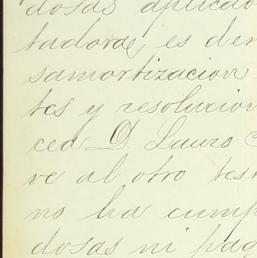 dosas aplicado
tadora, es den
samortizacion
tes y resolucion
ced D. Lauro C
ve al otro tes
no ha cump
dosas ni pag